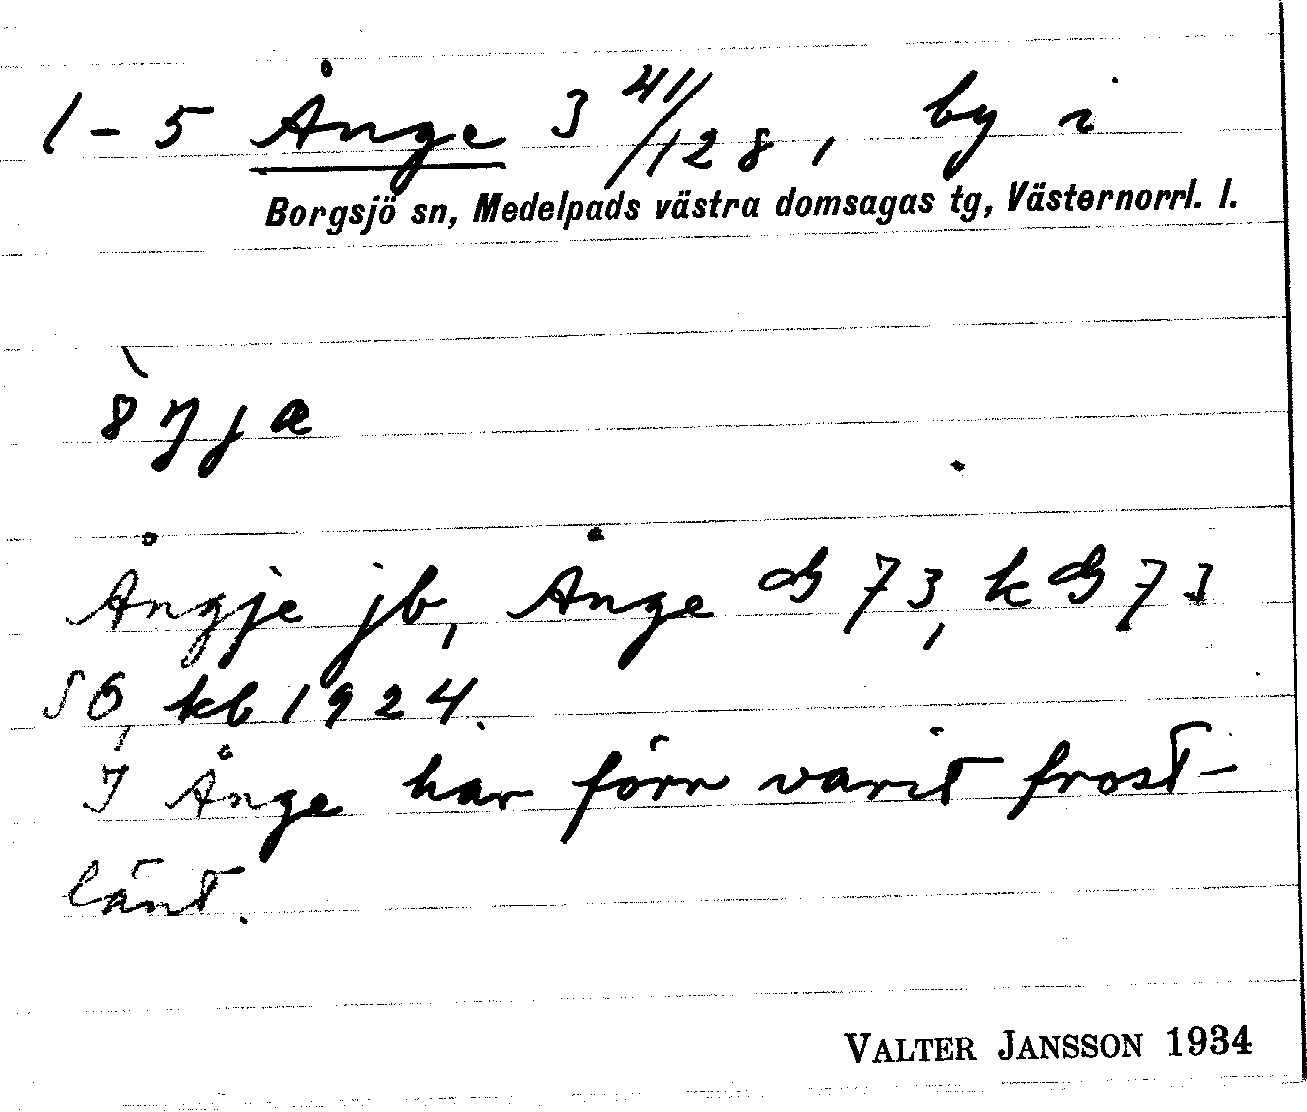 1-5 Ånge 3 41/128, by i
Borgsjö sn, Medelpads västra domsagas tg, Västernorrl. l.
Ångje jb, Ånge GB 73, k GB 73
SO, kb 1924.
I Ånge har förr varit frost-
länt.
VALTER JANSSON 1934